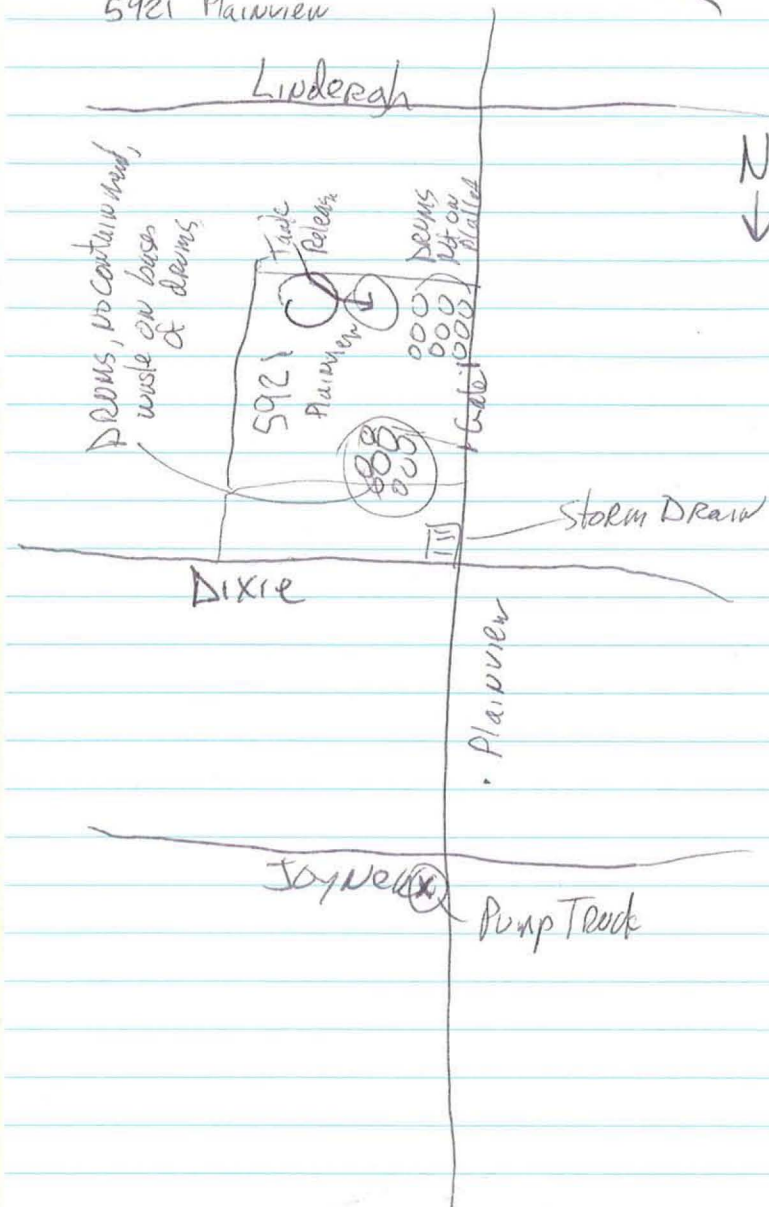 5921 Plainview
Lindergh
N
Drums, no containment,
waste on bases
of drums
Tank
Release
Drums
not on
Pallet
5921
Plainview
Gate
Storm Drain
Dixie
Plainview
Joyner
Pump Truck